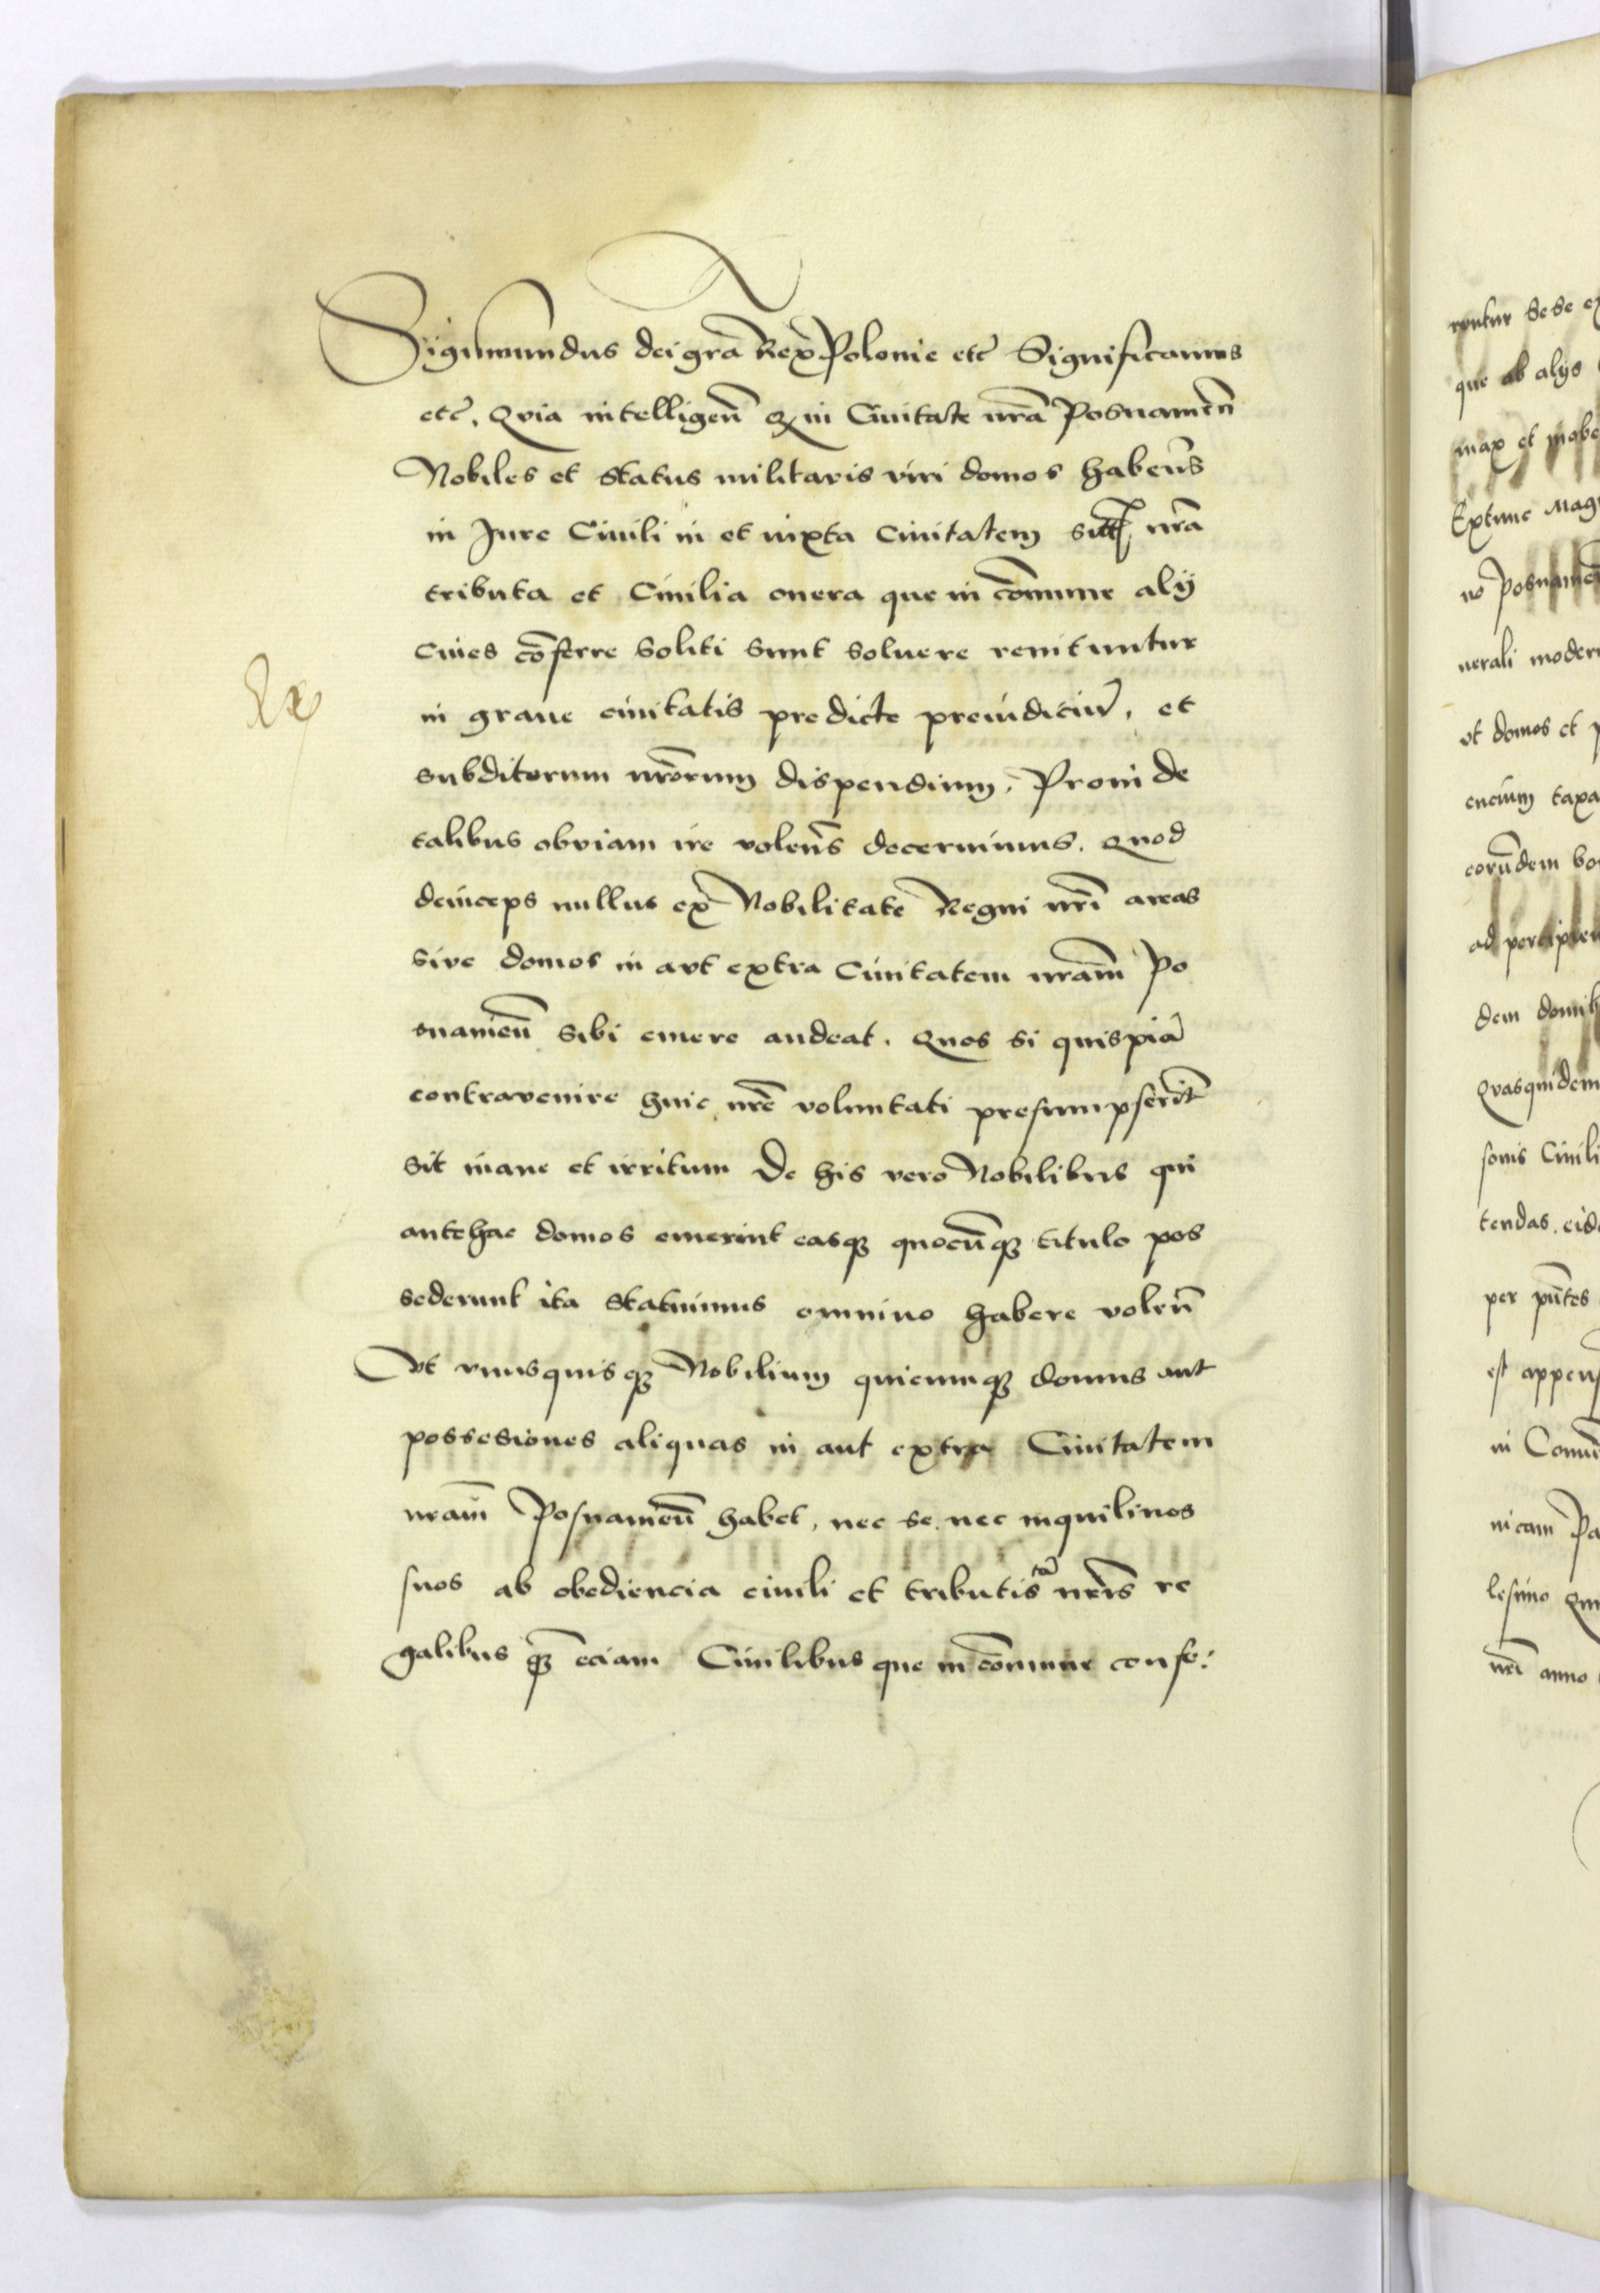 Sigismundus dei grã Rex Polonie etc̃ Significamus
etc̃. Qvia intelligeñ ꝙ in Ciuitate nrã Posnameñ
Nobiles et status militaris viri domos habeñs
in Jure Ciuili in et iuxta Ciuitatem nrã
tributa et Ciuilia onera que in cõmune alij
ciues cõferre soliti sunt soluere renituntur
in graue ciuitatis predicte preiuditiũ, et
subditorum nrõrum dispendium. Proinde
talibus obviam ire voleñs decernimus. Quod
deinceps nullus ex Nobilitate Regni nrĩ areas
sive domos in avt extra Ciuitatem nram̃ Po
snameñ sibi emere audeat. Quos si quispiã
contravenire huic nrẽ voluntati presumpserit
sit inane et irritum De his vero Nobilibus qui
antehac domos emerint easqꝫ quocũqꝫ titulo pos
sederunt ita statuimus omnino habere voleñ
Vt vnusquisqꝫ Nobilium quicumqꝫ domus aut
possesiones aliquas in aut extra Ciuitatem
nram̃ Posnameñ habet, nec se nec inquilinos
suos ab obediencia ciuili et tributis tã nrĩs re
galibus qꝫ̃ eciam Ciuilibus que in cõmune confe:
rentur sese
que ab alijs
max et
Extunc
no Posnameñ
nerali
vt domos et
encium taxa
corũdem
ad
dem
Qvasquidem
sonis Ciuili
tendas.
per pñtes
est
in
nicam
lesimo
nrĩ anno